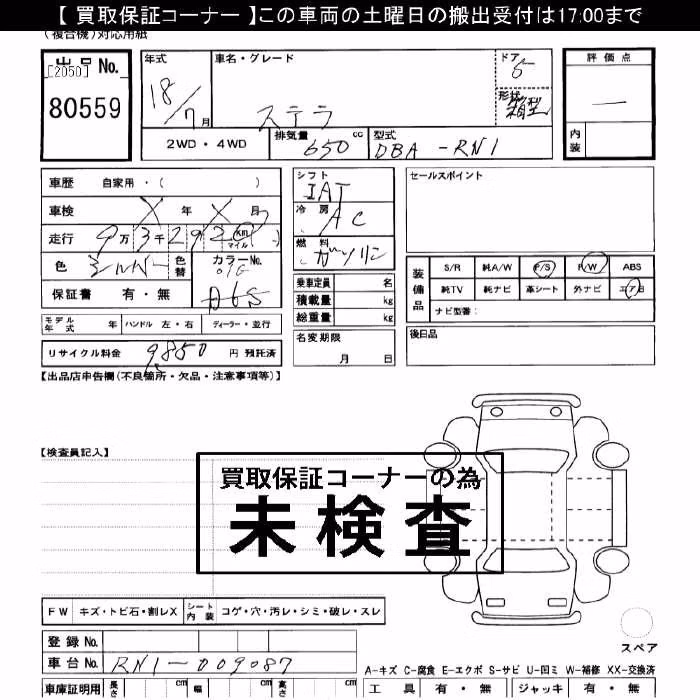 【 買取保証コーナー 】この車両の土曜日の搬出受付は17:00まで
(複合機)対応用紙
出品 No.
[2050]
80559
年式
18/7月
車名・グレード
ステラ
ドア
5
形状
箱型
評価点
—
内装
2WD・4WD
排気量 650 cc
型式 DBA-RN1
車歴 自家用・( )
車検 X年 X月
走行 9万3千292 km マイル
色 シルバー
色替
カラーNo.
D6S
保証書 有・無
モデル年式 年 ハンドル 左・右 ディーラー・並行
リサイクル料金 9,850 円 預託済
シフト
IAT
冷房
AC
燃料
ガソリン
乗車定員 名
積載量 kg
総重量 kg
名変期限
月 日
セールスポイント
装備品
S/R 純A/W P/S P/W ABS
純TV 純ナビ 革シート 外ナビ エアB
ナビ型番:
後日品
【出品店申告欄(不良箇所・欠品・注意事項等)】
【検査員記入】
買取保証コーナーの為
未検査
FW キズ・トビ石・割レX シート内装 コゲ・穴・汚レ・シミ・破レ・スレ
登録 No.
車台 No. RN1-009087
車庫証明用 長さ cm 幅 cm 高さ cm
スペア
A-キズ C-腐食 E-エクボ S-サビ U-凹ミ W-補修 XX-交換済
工具 有・無 ジャッキ 有・無